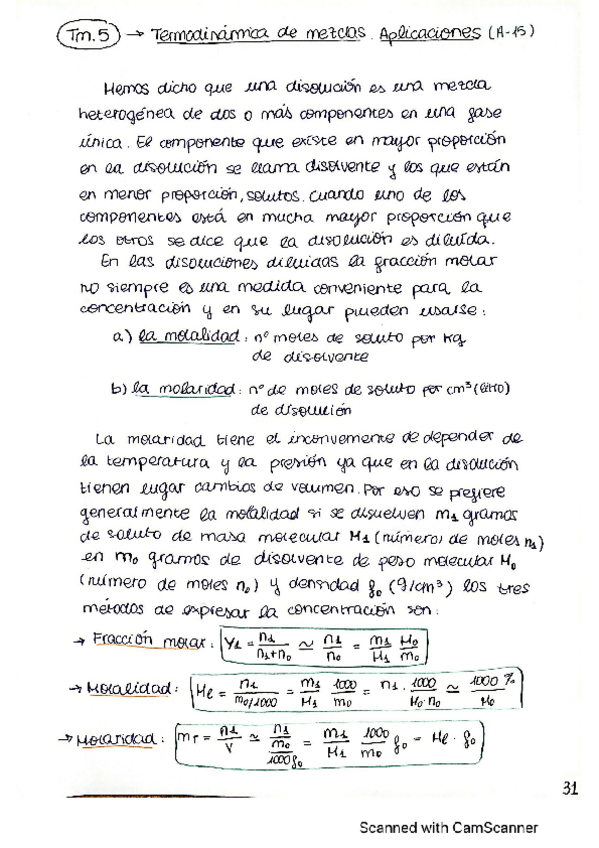 Tm.5 → Termodinámica de mezclas. Aplicaciones (A-15)
Hemos dicho que una disolución es una mezcla
heterogénea de dos o más componentes en una fase
única. El componente que existe en mayor proporción
en la disolución se llama disolvente y los que están
en menor proporción, solutos. Cuando uno de los
componentes está en mucha mayor proporción que
los otros se dice que la disolución es diluída.
En las disoluciones diluidas la fracción molar
no siempre es una medida conveniente para la
concentración y en su lugar pueden usarse:
a) la molalidad: nº moles de soluto por kg
de disolvente
b) la molaridad: nº de moles de soluto por cm³ (litro)
de disolución
La molaridad tiene el inconveniente de depender de
la temperatura y la presión ya que en la disolución
tienen lugar cambios de volumen. Por eso se prefiere
generalmente la molalidad si se disuelven m₁ gramos
de soluto de masa molecular M₁ (número de moles n₁)
en m₀ gramos de disolvente de peso molecular M₀
(número de moles n₀) y densidad ρ₀ (g/cm³) los tres
métodos de expresar la concentración son:
→ Fracción molar: Y₁ = n₁/(n₁+n₀) ≃ n₁/n₀ = m₁/M₁ M₀/m₀
→ Molalidad: Me = n₁/(m₀/1000) = m₁/M₁ 1000/m₀ = n₁ · 1000/(M₀·n₀) ≃ 1000 /M₀
→ Molaridad: mr = n₁/V ≃ n₁/(m₀/1000ρ₀) = m₁/M₁ 1000/m₀ ρ₀ = Me · ρ₀
31
Scanned with CamScanner